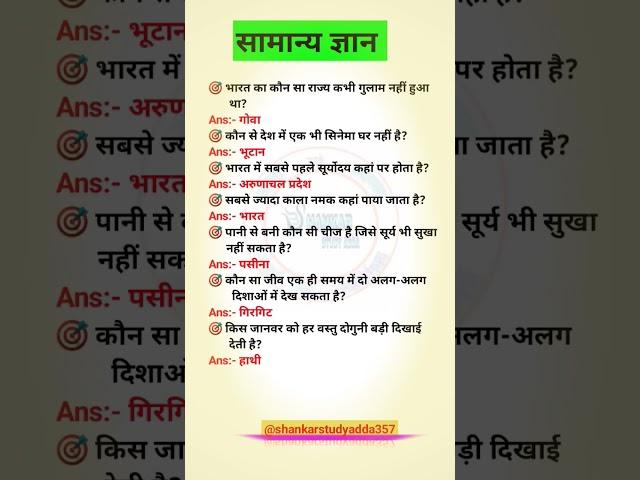 सामान्य ज्ञान
🎯 भारत का कौन सा राज्य कभी गुलाम नहीं हुआ
था?
Ans:- गोवा
🎯 कौन से देश में एक भी सिनेमा घर नहीं है?
Ans:- भूटान
🎯 भारत में सबसे पहले सूर्योदय कहां पर होता है?
Ans:- अरुणाचल प्रदेश
🎯 सबसे ज्यादा काला नमक कहां पाया जाता है?
Ans:- भारत
🎯 पानी से बनी कौन सी चीज है जिसे सूर्य भी सुखा
नहीं सकता है?
Ans:- पसीना
🎯 कौन सा जीव एक ही समय में दो अलग-अलग
दिशाओं में देख सकता है?
Ans:- गिरगिट
🎯 किस जानवर को हर वस्तु दोगुनी बड़ी दिखाई
देती है?
Ans:- हाथी
@shankarstudyadda357